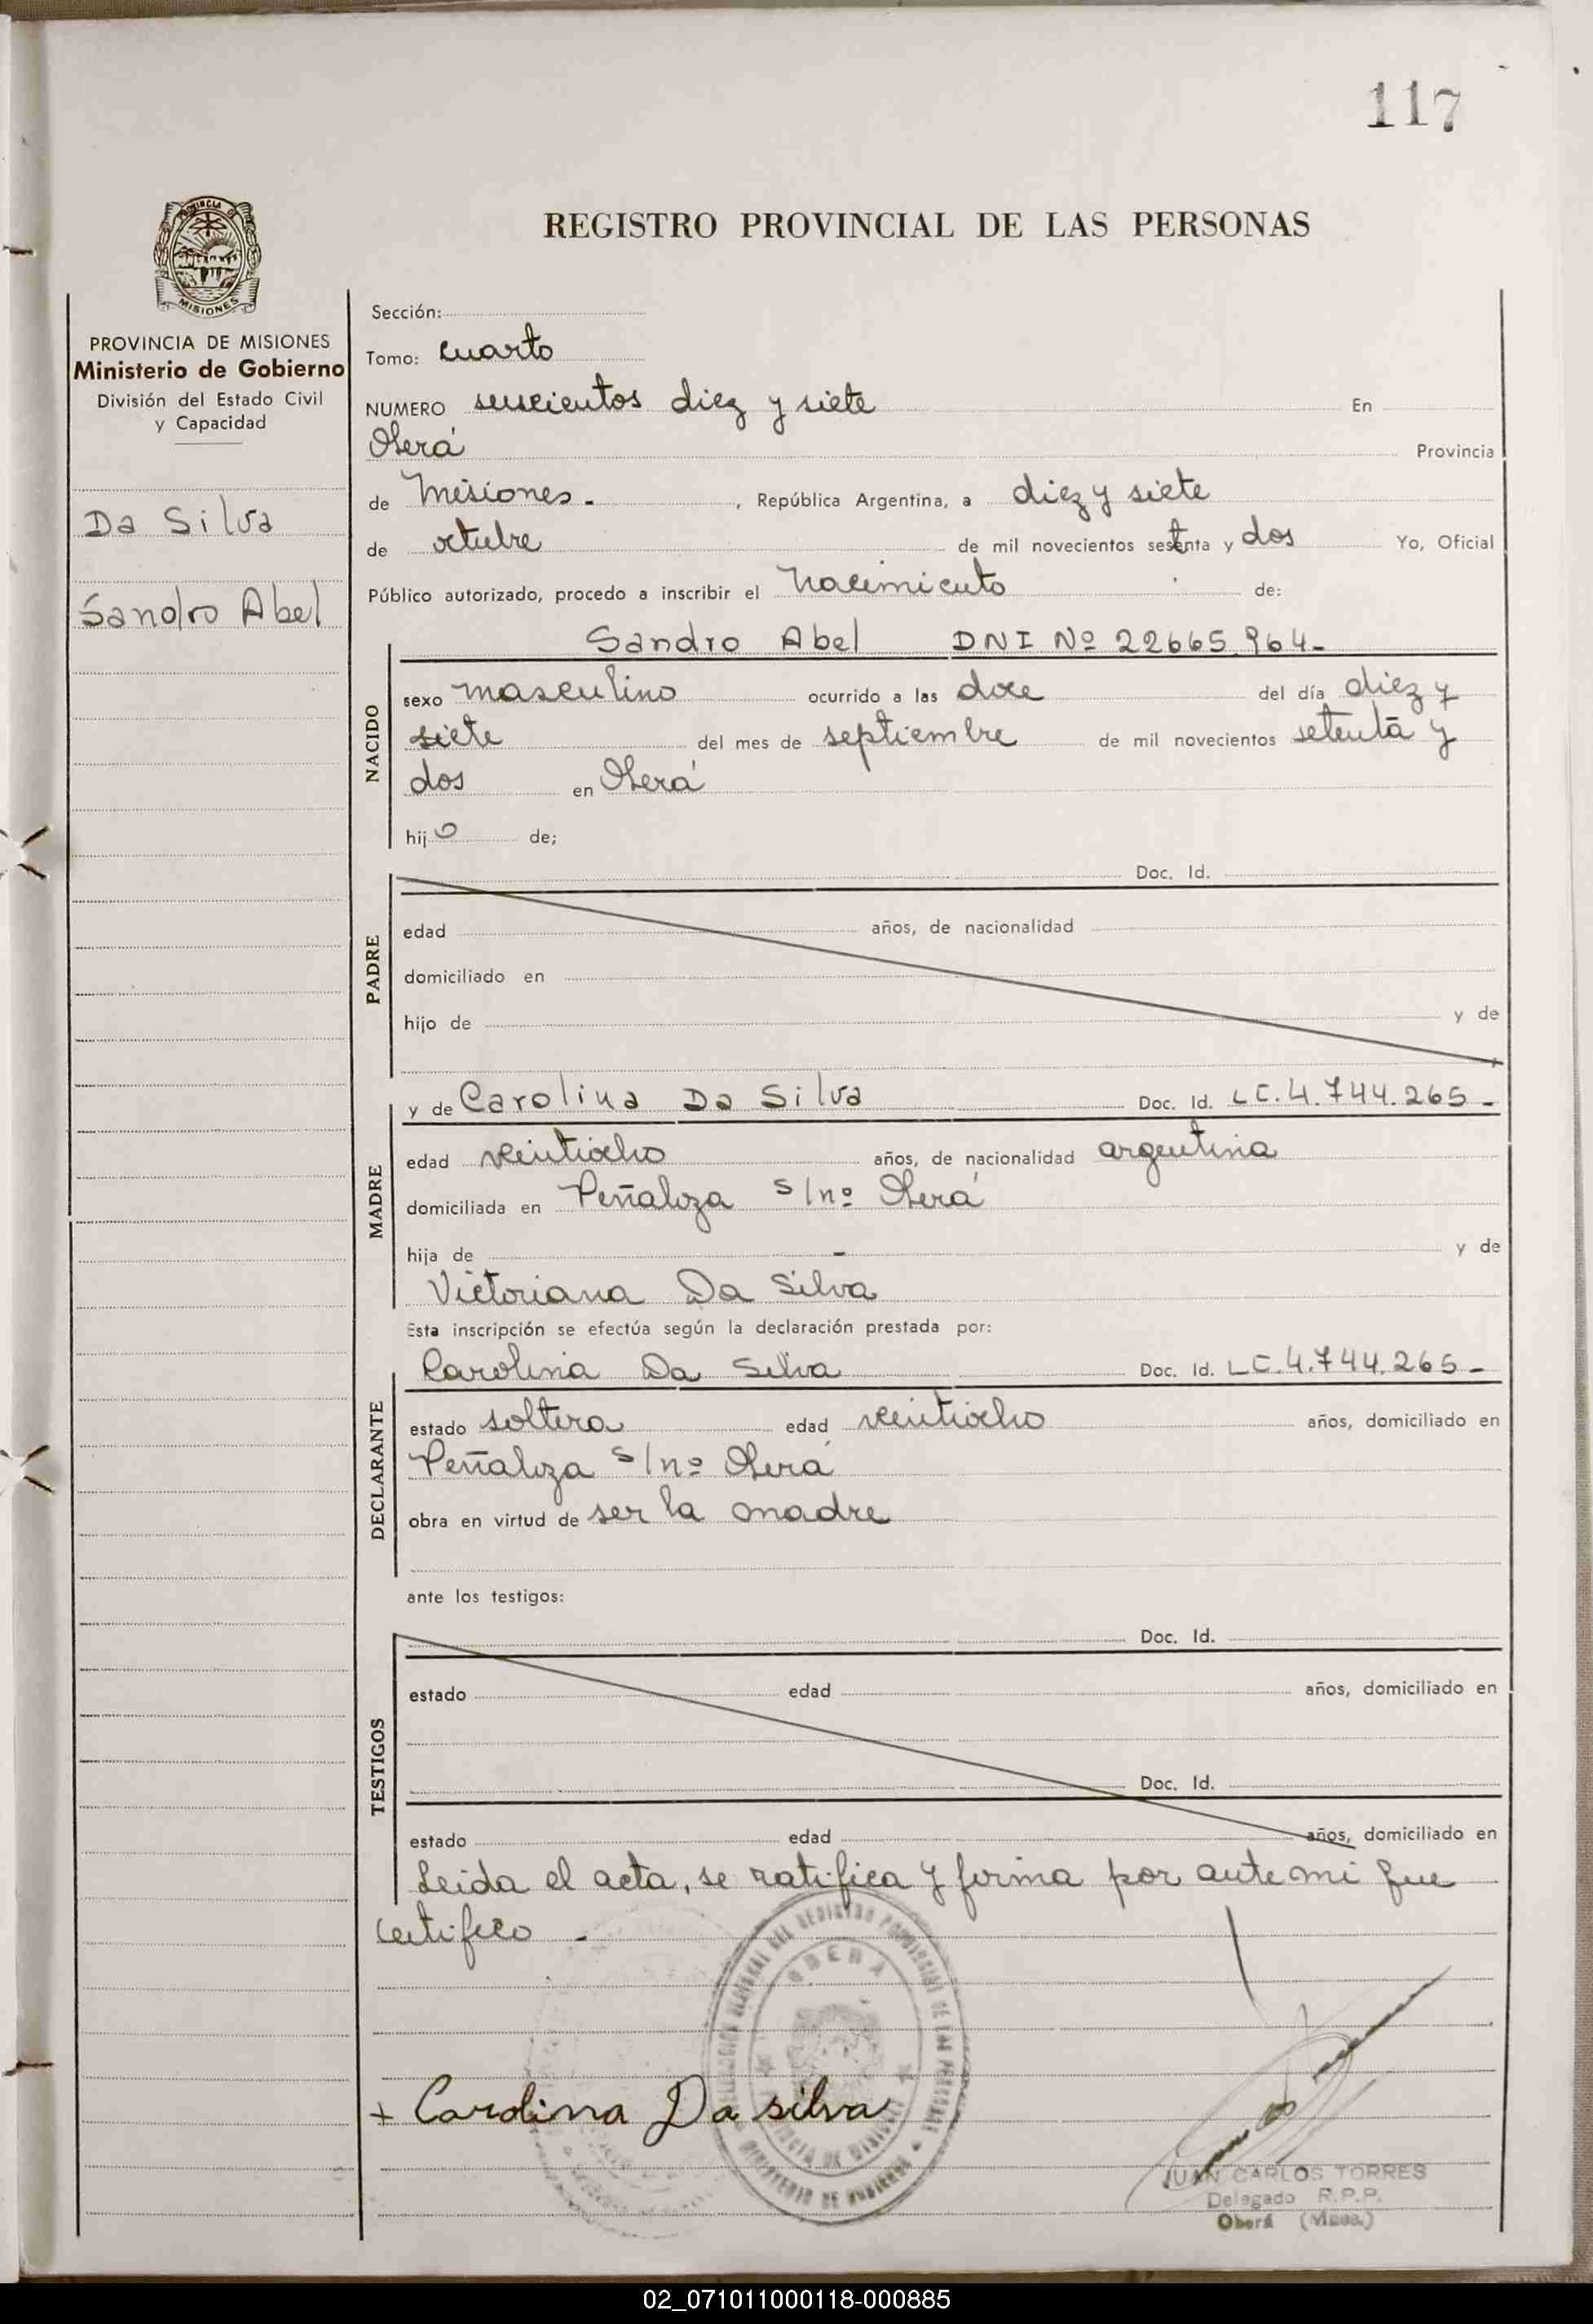 117
REGISTRO PROVINCIAL DE LAS PERSONAS
PROVINCIA DE
MISIONES
PROVINCIA DE MISIONES
Ministerio de Gobierno
División del Estado Civil
y Capacidad
Da Silva
Sandro Abel
Sección:
Tomo: cuarto
NUMERO seiscientos diez y siete En
Oberá Provincia
de Misiones - , República Argentina, a diez y siete
de octubre de mil novecientos setenta y dos Yo, Oficial
Público autorizado, procedo a inscribir el nacimiento de:
NACIDO
Sandro Abel DNI Nº 22665.964-
sexo masculino ocurrido a las doce del día diez y
siete del mes de septiembre de mil novecientos setenta y
dos en Oberá
hijo de;
PADRE
Doc. Id.
edad años, de nacionalidad
domiciliado en
hijo de y de
MADRE
y de Carolina Da Silva Doc. Id. LC.4.744.265-
edad veintiocho años, de nacionalidad argentina
domiciliada en Peñaloza s/nº Oberá
hija de - y de
Victoriana Da Silva
Esta inscripción se efectúa según la declaración prestada por:
DECLARANTE
Carolina Da Silva Doc. Id. LC.4.744.265-
estado soltera edad veintiocho años, domiciliado en
Peñaloza s/nº Oberá
obra en virtud de ser la madre
ante los testigos:
TESTIGOS
Doc. Id.
estado edad años, domiciliado en
Doc. Id.
estado edad años, domiciliado en
Leida el acta, se ratifica y firma por ante mi que
certifico -
OBERA
+ Carolina Da silva
JUAN CARLOS TORRES
Delegado R.P.P.
Oberá (Mnes.)
02_071011000118-000885